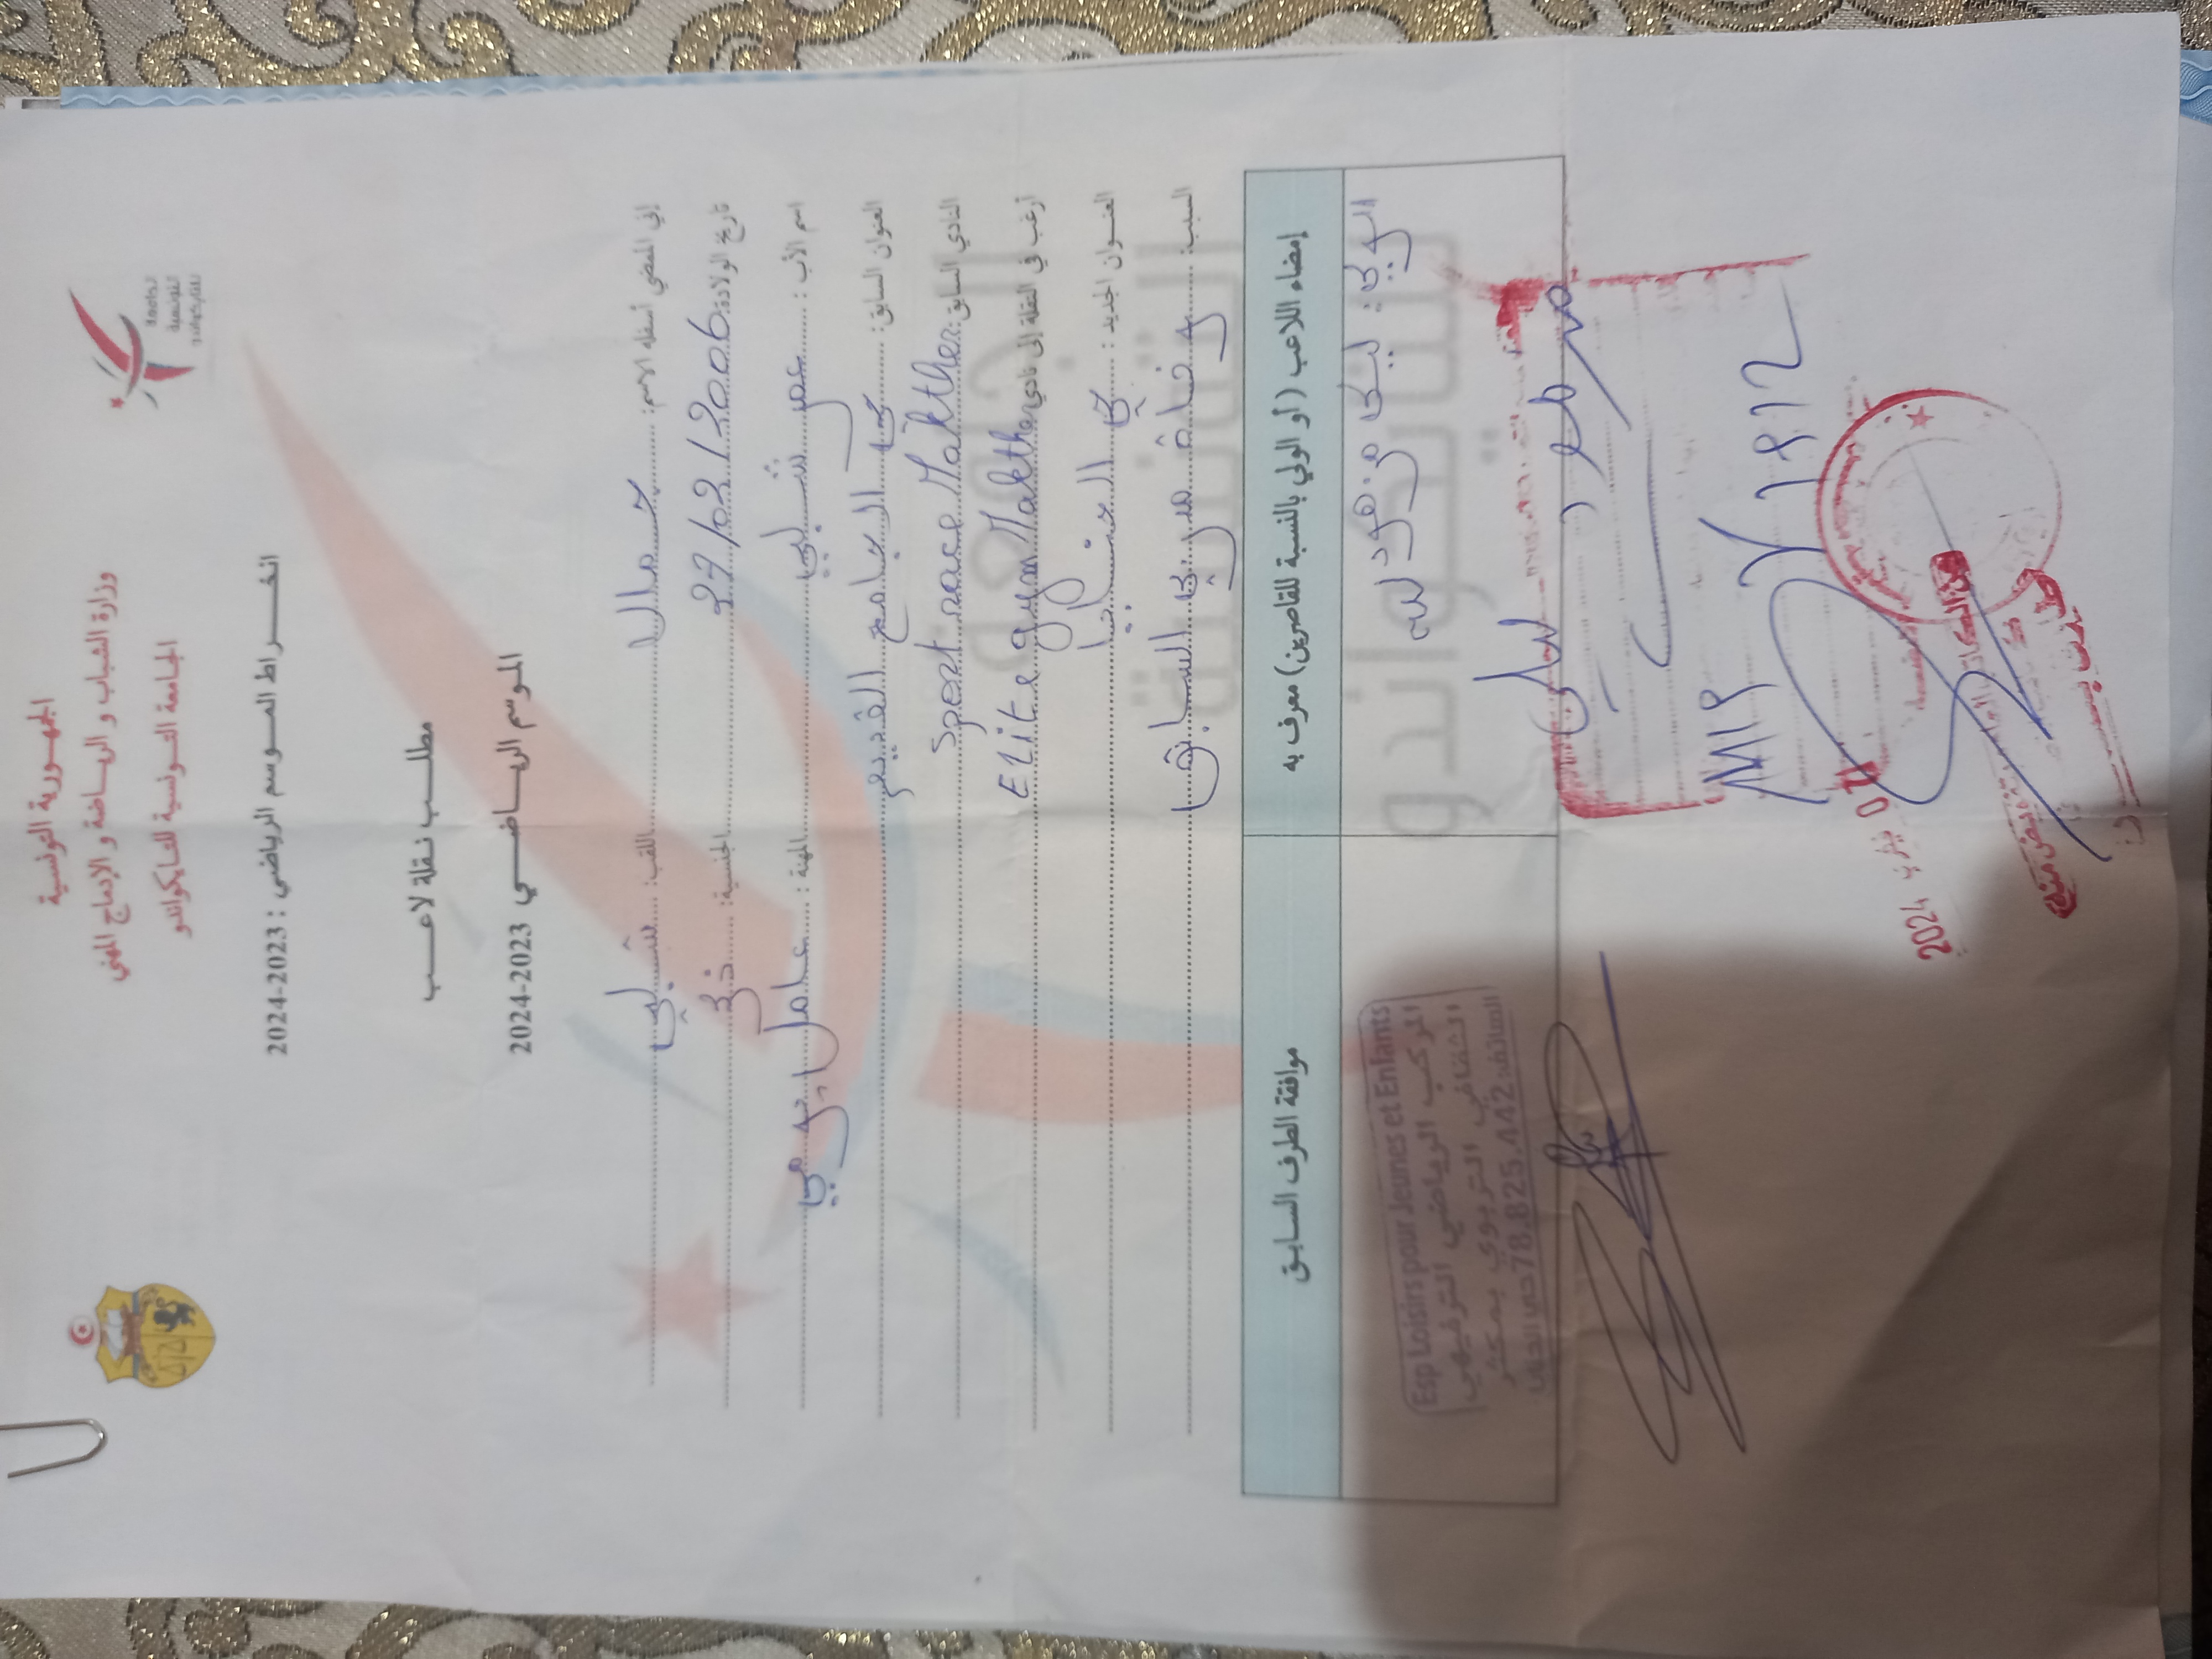 الجمهورية التونسية
وزارة الشباب و الرياضة و الإدماج المهني
الجامعة التونسية للتايكواندو
الجامعة
التونسية
للتايكواندو
انخراط الموسم الرياضي : 2023-2024
مطلب نقلة لاعب
الموسم الرياضي 2023-2024
إني الممضي أسفله الاسم: جمال اللقب: شلبي
تاريخ الولادة: 27/02/2006 الجنسية: ذكر
اسم الأب : عمر شلبي المهنة : عامل يومي
العنوان السابق: حي الجامع القديم
النادي السابق: Sport race Makther
أرغب في النقلة إلى نادي Elite gym Makther
العنوان الجديد : حي
السبب: وفاة مدربي السابق
إمضاء اللاعب (أو الولي بالنسبة للقاصرين) معرف به
موافقة الطرف السابق
الولي: ليلى
Esp Loisirs pour Jeunes et Enfants
المركب الرياضي الترفيهي
الثقافي التربوي بمكثر
الهاتف: 78.825.442
01 فيفري 2024